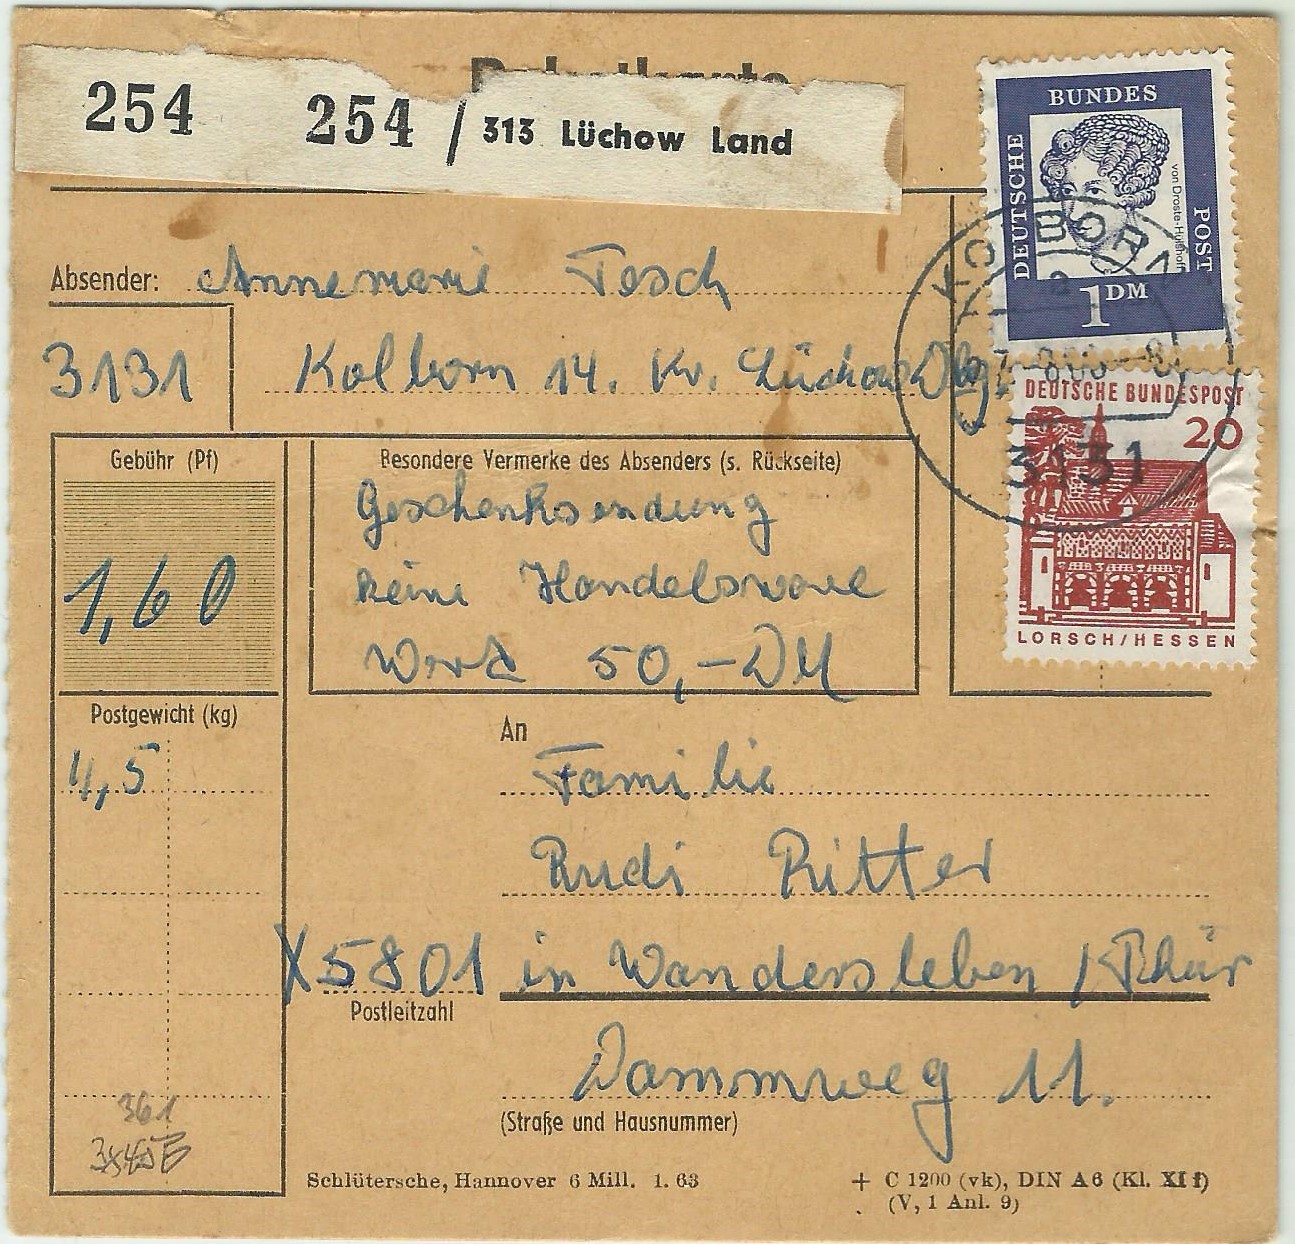 254 254 / 313 Lüchow Land
Paketkarte
BUNDES
DEUTSCHE
POST
von Droste-Hülshoff
1 DM
KOLBORN
Absender: Annemarie Tesch
3131 Kolborn 14. Kr. Lüchow Dbg.
DEUTSCHE BUNDESPOST
20
3131
LORSCH/HESSEN
Gebühr (Pf)
1,60
Besondere Vermerke des Absenders (s. Rückseite)
Geschenksendung
keine Handelsware
Wert 50,-DM
Postgewicht (kg)
4,5
An
Familie
Rudi Ritter
X5801 in Wandersleben /Thür
Postleitzahl
Dammweg 11.
(Straße und Hausnummer)
361
Schlütersche, Hannover 6 Mill. 1. 63
+ C 1200 (vk), DIN A 6 (Kl. XI f)
(V, 1 Anl. 9)